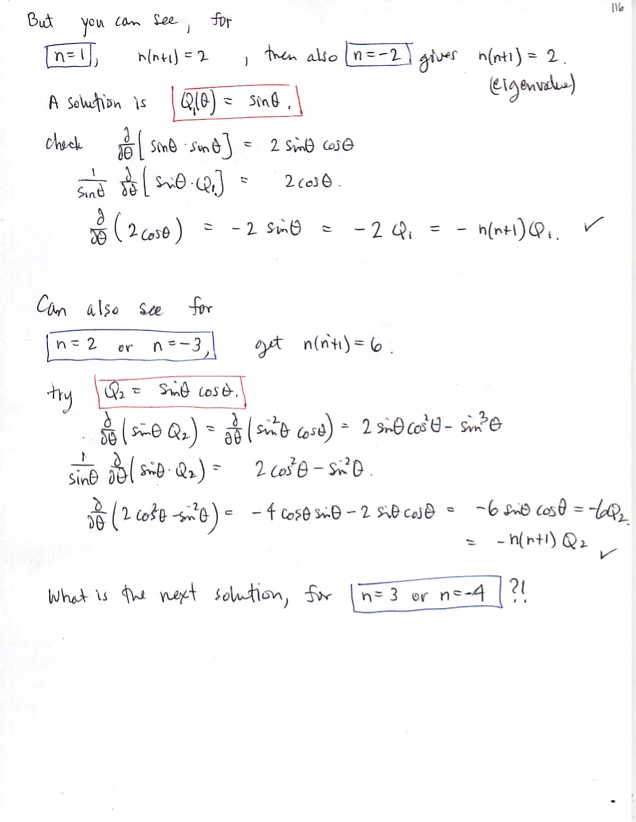 116
But you can see, for
n=1, n(n+1) = 2, then also n=-2 gives n(n+1) = 2.
(eigenvalue)
A solution is Q₁(θ) = sinθ.
Check ∂/∂θ [sinθ · sinθ] = 2 sinθ cosθ
1/sinθ ∂/∂θ [sinθ · Q₁] = 2cosθ.
∂/∂θ (2cosθ) = -2 sinθ = -2 Q₁ = - n(n+1)Q₁. ✓
Can also see for
n=2 or n=-3, get n(n+1)=6.
try Q₂ = sinθ cosθ.
∂/∂θ (sinθ Q₂) = ∂/∂θ (sin²θ cosθ) = 2 sinθ cos²θ - sin³θ
1/sinθ ∂/∂θ (sinθ · Q₂) = 2cos²θ - sin²θ.
∂/∂θ (2cos²θ - sin²θ) = -4 cosθ sinθ - 2 sinθ cosθ = -6 sinθ cosθ = -6Q₂
= -n(n+1) Q₂ ✓
What is the next solution, for n=3 or n=-4 ?!